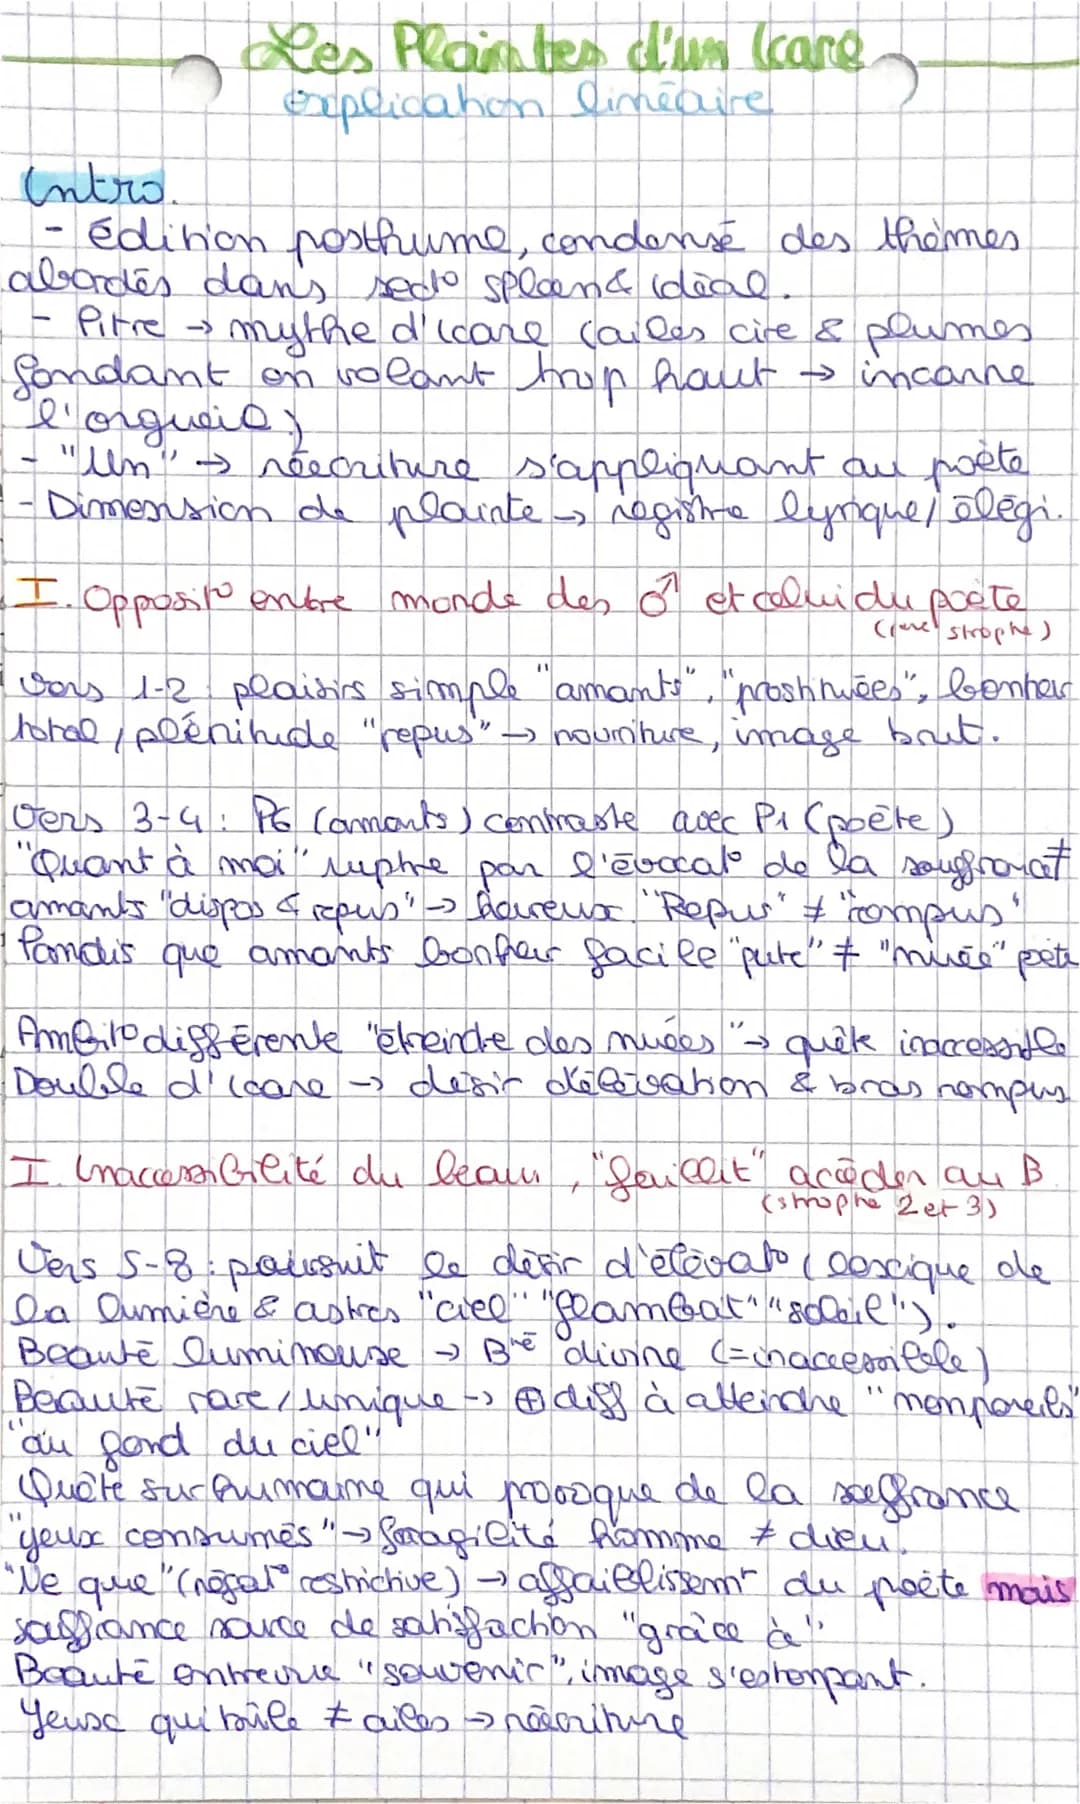 Les Plaintes d'un Icare
explication linéaire
Intro.
- Édition posthume, condensé des thèmes
abordés dans sect° spleen & idéal.
- Titre → mythe d'Icare (ailes cire & plumes
fondant en volant trop haut → incarne
l'orgueil)
- "Un" → réécriture s'appliquant au poète
- Dimension de plainte → registre lyrique/élégi.
I. Opposit° entre monde des ♂ et celui du poète
(1ère strophe)
Vers 1-2 : plaisirs simple "amants", "prostituées", bonheur
total / plénitude "repus" → nourriture, image brut.
Vers 3-4 : P6 (amants) contraste avec P1 (poète)
"Quant à moi" rupture par l'évocat° de la souffrance ≠
amants "dispos & repus" → heureux. "Repus" ≠ "rompus"
Tandis que amants bonheur facile "pute" ≠ "nuée" poète
Ambit° différente "étreindre des nuées" → quête inaccessible
Double d'Icare → désir d'élévation & bras rompus
I. Inaccessibilité du beau, "faillit" accéder au B
(strophe 2 et 3)
Vers 5-8 : poursuit le désir d'élévat° (lexique de
la lumière & astres "ciel" "flambat" "soleil").
Beauté lumineuse → Bté divine (=inaccessible)
Beauté rare/unique → ⊕ diff à atteindre "nonpareils"
"au fond du ciel"
Quête surhumaine qui provoque de la souffrance
"yeux consumés" → fragilité homme ≠ dieu.
"Ne que" (négat° restrictive) → affaiblissemt du poète mais
souffrance source de satisfaction "grâce à"
Beauté entrevue "souvenir", image s'estompant.
Yeux qui brûle ≠ ailes → réécriture